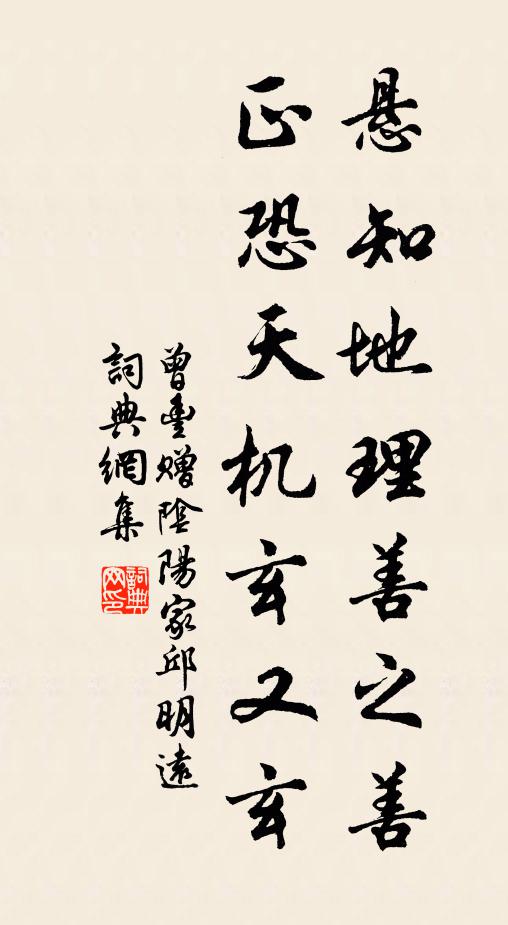 悬知地理善之善
正恐天机玄又玄
曾豊赠陰陽家邱明遠
詞典網集
詞典
网印